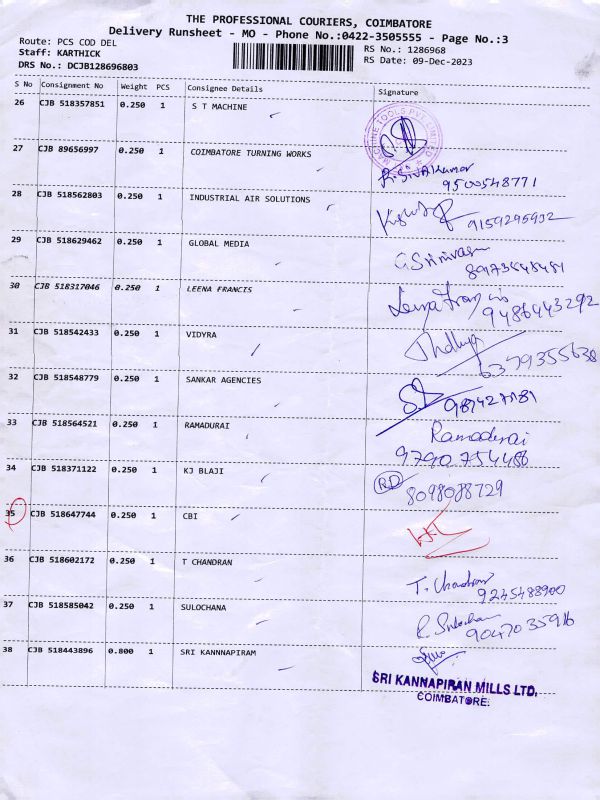 THE PROFESSIONAL COURIERS, COIMBATORE
Delivery Runsheet - MO - Phone No.:0422-3505555 - Page No.:3
Route: PCS COD DEL
RS No.: 1286968
Staff: KARTHICK
RS Date: 09-Dec-2023
DRS No.: DCJB128696803
S No Consignment No Weight PCS Consignee Details Signature
26 CJB 518357851 0.250 1 S T MACHINE
MACHINE TOOLS PVT LIMITED
27 CJB 89656997 0.250 1 COIMBATORE TURNING WORKS
9500548771
28 CJB 518562803 0.250 1 INDUSTRIAL AIR SOLUTIONS
9159295932
29 CJB 518629462 0.250 1 GLOBAL MEDIA
G Srinivasan
30 CJB 518317046 0.250 1 LEENA FRANCIS
Leena Francis
9486443292
31 CJB 518542433 0.250 1 VIDYRA
6379355638
32 CJB 518548779 0.250 1 SANKAR AGENCIES
33 CJB 518564521 0.250 1 RAMADURAI
Ramadurai
9790754488
34 CJB 518371122 0.250 1 KJ BLAJI
RD 8098088729
35 CJB 518647744 0.250 1 CBI
36 CJB 518602172 0.250 1 T CHANDRAN
T. Chandran
9245488900
37 CJB 518585042 0.250 1 SULOCHANA
R. Sulochana
9047035916
38 CJB 518443896 0.800 1 SRI KANNNAPIRAM
SRI KANNAPIRAN MILLS LTD.
COIMBATORE.